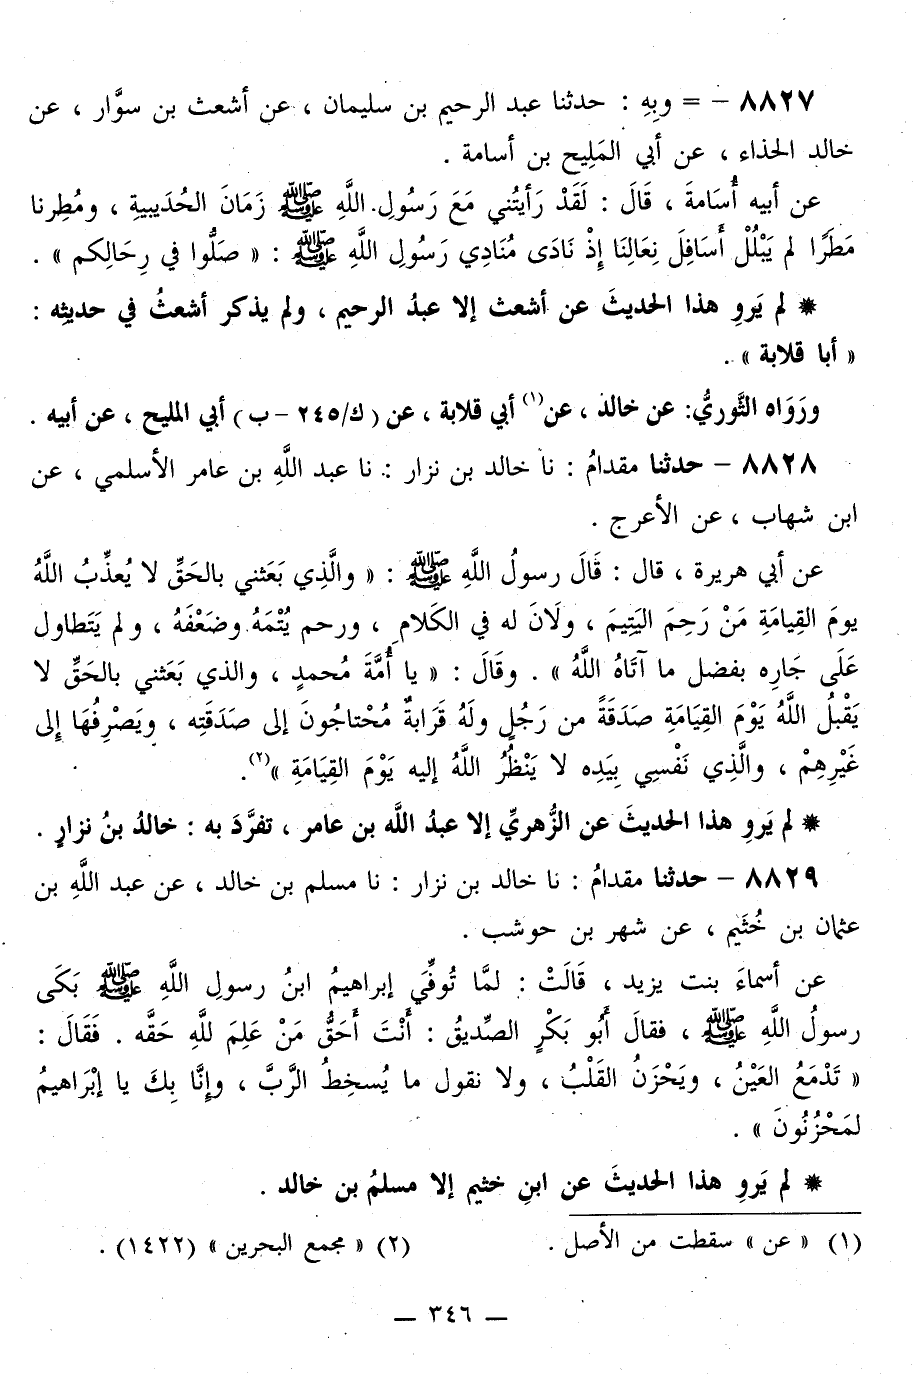 ٨٨٢٧ – = وبِهِ : حدثنا عبد الرحيم بن سليمان ، عن أشعث بن سوَّار ، عن
خالد الحذاء ، عن أبي المَلِيح بن أسامة .
عن أبيه أُسَامةَ ، قَالَ : لَقَدْ رَأيتُني مَعَ رَسُولِ اللَّهِ ﷺ زَمَانَ الحُدَيبيةِ ، ومُطِرنا
مَطَرًا لم يَبْلُلْ أَسَافِلَ نِعَالِنَا إذْ نَادَى مُنَادِي رَسُولِ اللَّهِ ﷺ : « صَلُّوا في رِحَالِكم » .
* لم يَروِ هذا الحديثَ عن أشعث إلا عبدُ الرحيم ، ولم يذكر أشعثُ في حديثِه :
« أبا قلابة » .
ورَوَاه الثَّوريُّ: عن خالد ، عن(١) أبي قلابة ، عن ( ك/٢٤٥ – ب ) أبي المليح ، عن أبيه .
٨٨٢٨ – حدثنا مقدامُ : نا خالد بن نزار : نا عبد اللَّهِ بن عامر الأسلمي ، عن
ابن شهاب ، عن الأعرج .
عن أبي هريرة ، قال : قَالَ رسولُ اللَّهِ ﷺ : « والَّذِي بَعَثني بالحَقِّ لا يُعذِّبُ اللَّهُ
يومَ القِيامَةِ مَنْ رَحِمَ اليَتِيمَ ، ولَانَ له في الكَلَامِ ، ورحم يُتْمَهُ وضَعْفَهُ ، ولم يَتَطاول
عَلَى جَارِه بفضل ما آتَاهُ اللَّهُ » . وقَالَ : « يا أُمَّةَ مُحمدٍ ، والذي بَعَثني بالحَقِّ لا
يَقْبلُ اللَّهُ يَوْمَ القِيَامَةِ صَدَقَةً من رَجُلٍ ولَهُ قَرَابةٌ مُحْتاجُونَ إلى صَدَقَتِه ، ويَصْرِفُهَا إلى
غَيْرِهِمْ ، والَّذِي نَفْسِي بِيَدِه لا يَنْظُرُ اللَّهُ إليه يَوْمَ القِيَامَةِ »(٢).
* لم يَروِ هذا الحديثَ عن الزُّهريِّ إلا عبدُ اللَّه بن عامر ، تفرَّدَ به : خالدُ بنُ نزارٍ .
٨٨٢٩ – حدثنا مقدامُ : نا خالد بن نزار : نا مسلم بن خالد ، عن عبد اللَّهِ بن
عثمان بن خُثَيم ، عن شهر بن حوشب .
عن أسماءَ بنت يزيد ، قَالَتْ : لمَّا تُوفِّيَ إبراهيمُ ابنُ رسولِ اللَّهِ ﷺ بَكَى
رسولُ اللَّهِ ﷺ ، فقالَ أَبُو بَكْرٍ الصِّديقُ : أَنْتَ أَحَقُّ مَنْ عَلِمَ للَّهِ حَقَّه . فَقَالَ :
« تَدْمَعُ العَيْنُ ، ويَحْزَنُ القَلْبُ ، ولا نقول ما يُسخِطُ الرَّبَّ ، وإنَّا بِكَ يا إبْرَاهيمُ
لمَحْزُنُونَ » .
* لم يَروِ هذا الحديثَ عن ابنِ خثيم إلا مسلمُ بن خالد .
(١) « عن » سقطت من الأصل . (٢) « مجمع البحرين » (١٤٢٢) .
— ٣٤٦ —